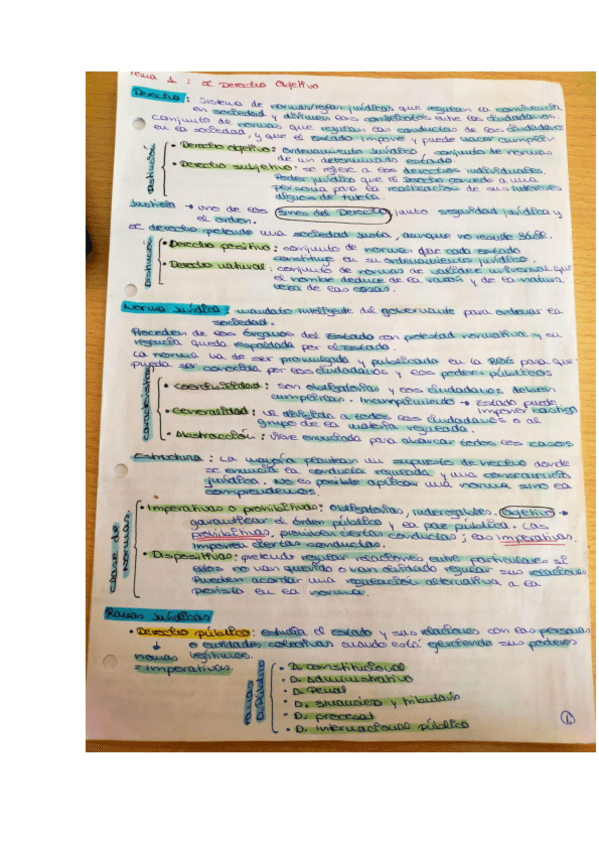 Tema 1 : El Derecho Objetivo
Derecho : Sistema de normas/reglas jurídicas que regulan la convivencia
en sociedad y dirimen los conflictos entre los ciudadanos.
conjunto de normas que regulan las conductas de los ciudadanos
en la sociedad, y que el estado impone y puede hacer cumplir
Distinción
• Derecho objetivo : ordenamiento jurídico, conjunto de normas
de un determinado estado
• Derecho subjetivo : se refiere a los derechos individuales.
Poder jurídico que el Derecho concede a una
persona para la realización de sus intereses
dignos de tutela.
Justicia → uno de los fines del Derecho, junto seguridad jurídica y
el orden.
El derecho pretende una sociedad justa, aunque no
Distinción
• Derecho positivo : conjunto de normas que cada estado
constituye en su ordenamiento jurídico.
• Derecho natural : conjunto de normas de validez universal que
el hombre deduce de la razón y de la natura
leza de las cosas.
Norma Jurídica : mandato inteligente del gobernante para ordenar la
sociedad.
Proceden de los órganos del estado con potestad normativa y su
vigencia queda respaldada por el estado.
La norma ha de ser promulgada y publicada en la para que
pueda ser conocida por los ciudadanos y los poderes públicos
características
• Coercibilidad : son obligatorias y los ciudadanos deben
cumplirlas. Incumplimiento → Estado puede
imponer castigo
• Generalidad : va dirigida a todos los ciudadanos o al
grupo de la materia regulada.
• Abstracción : viene enunciada para abarcar todos los casos
Estructura : La mayoría plantean un supuesto de hecho donde
se enuncia la conducta regulada y una consecuencia
jurídica. No es posible aplicar una norma sino la
comprendemos.
clase de normas
• Imperativas o prohibitivas : obligatorias, inderogables. Objetivo →
garantizar el orden público y la paz pública. Las
prohibitivas, prohiben ciertas conductas ; las imperativas.
imponen ciertas conductas.
• Dispositivas : pretende regular relaciones entre particulares si
ellos no han querido o han olvidado regular sus relaciones
Pueden acordar una regulación alternativa a la
prevista en la norma.
Ramas Jurídicas
• Derecho público : estudia el estado y sus relaciones con las personas
o entidades colectivas cuando está gestionando sus poderes
normas legítimos.
= imperativas
ramas D. Público
• D. constitucional
• D. Administrativo
• D. Penal
• D. financiero y tributario
• D. procesal
• D. internacional público
1